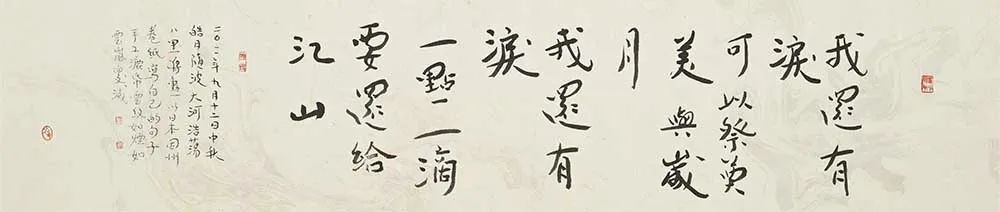 我還有
淚
可以祭奠
美與歲
月
我還有
淚
一點一滴
要還給
江山
二〇一一年九月十二日中秋
皓月隨波大河浩蕩
八里蔣勳以日本因州
卷紙寫自己的句子
如煙如